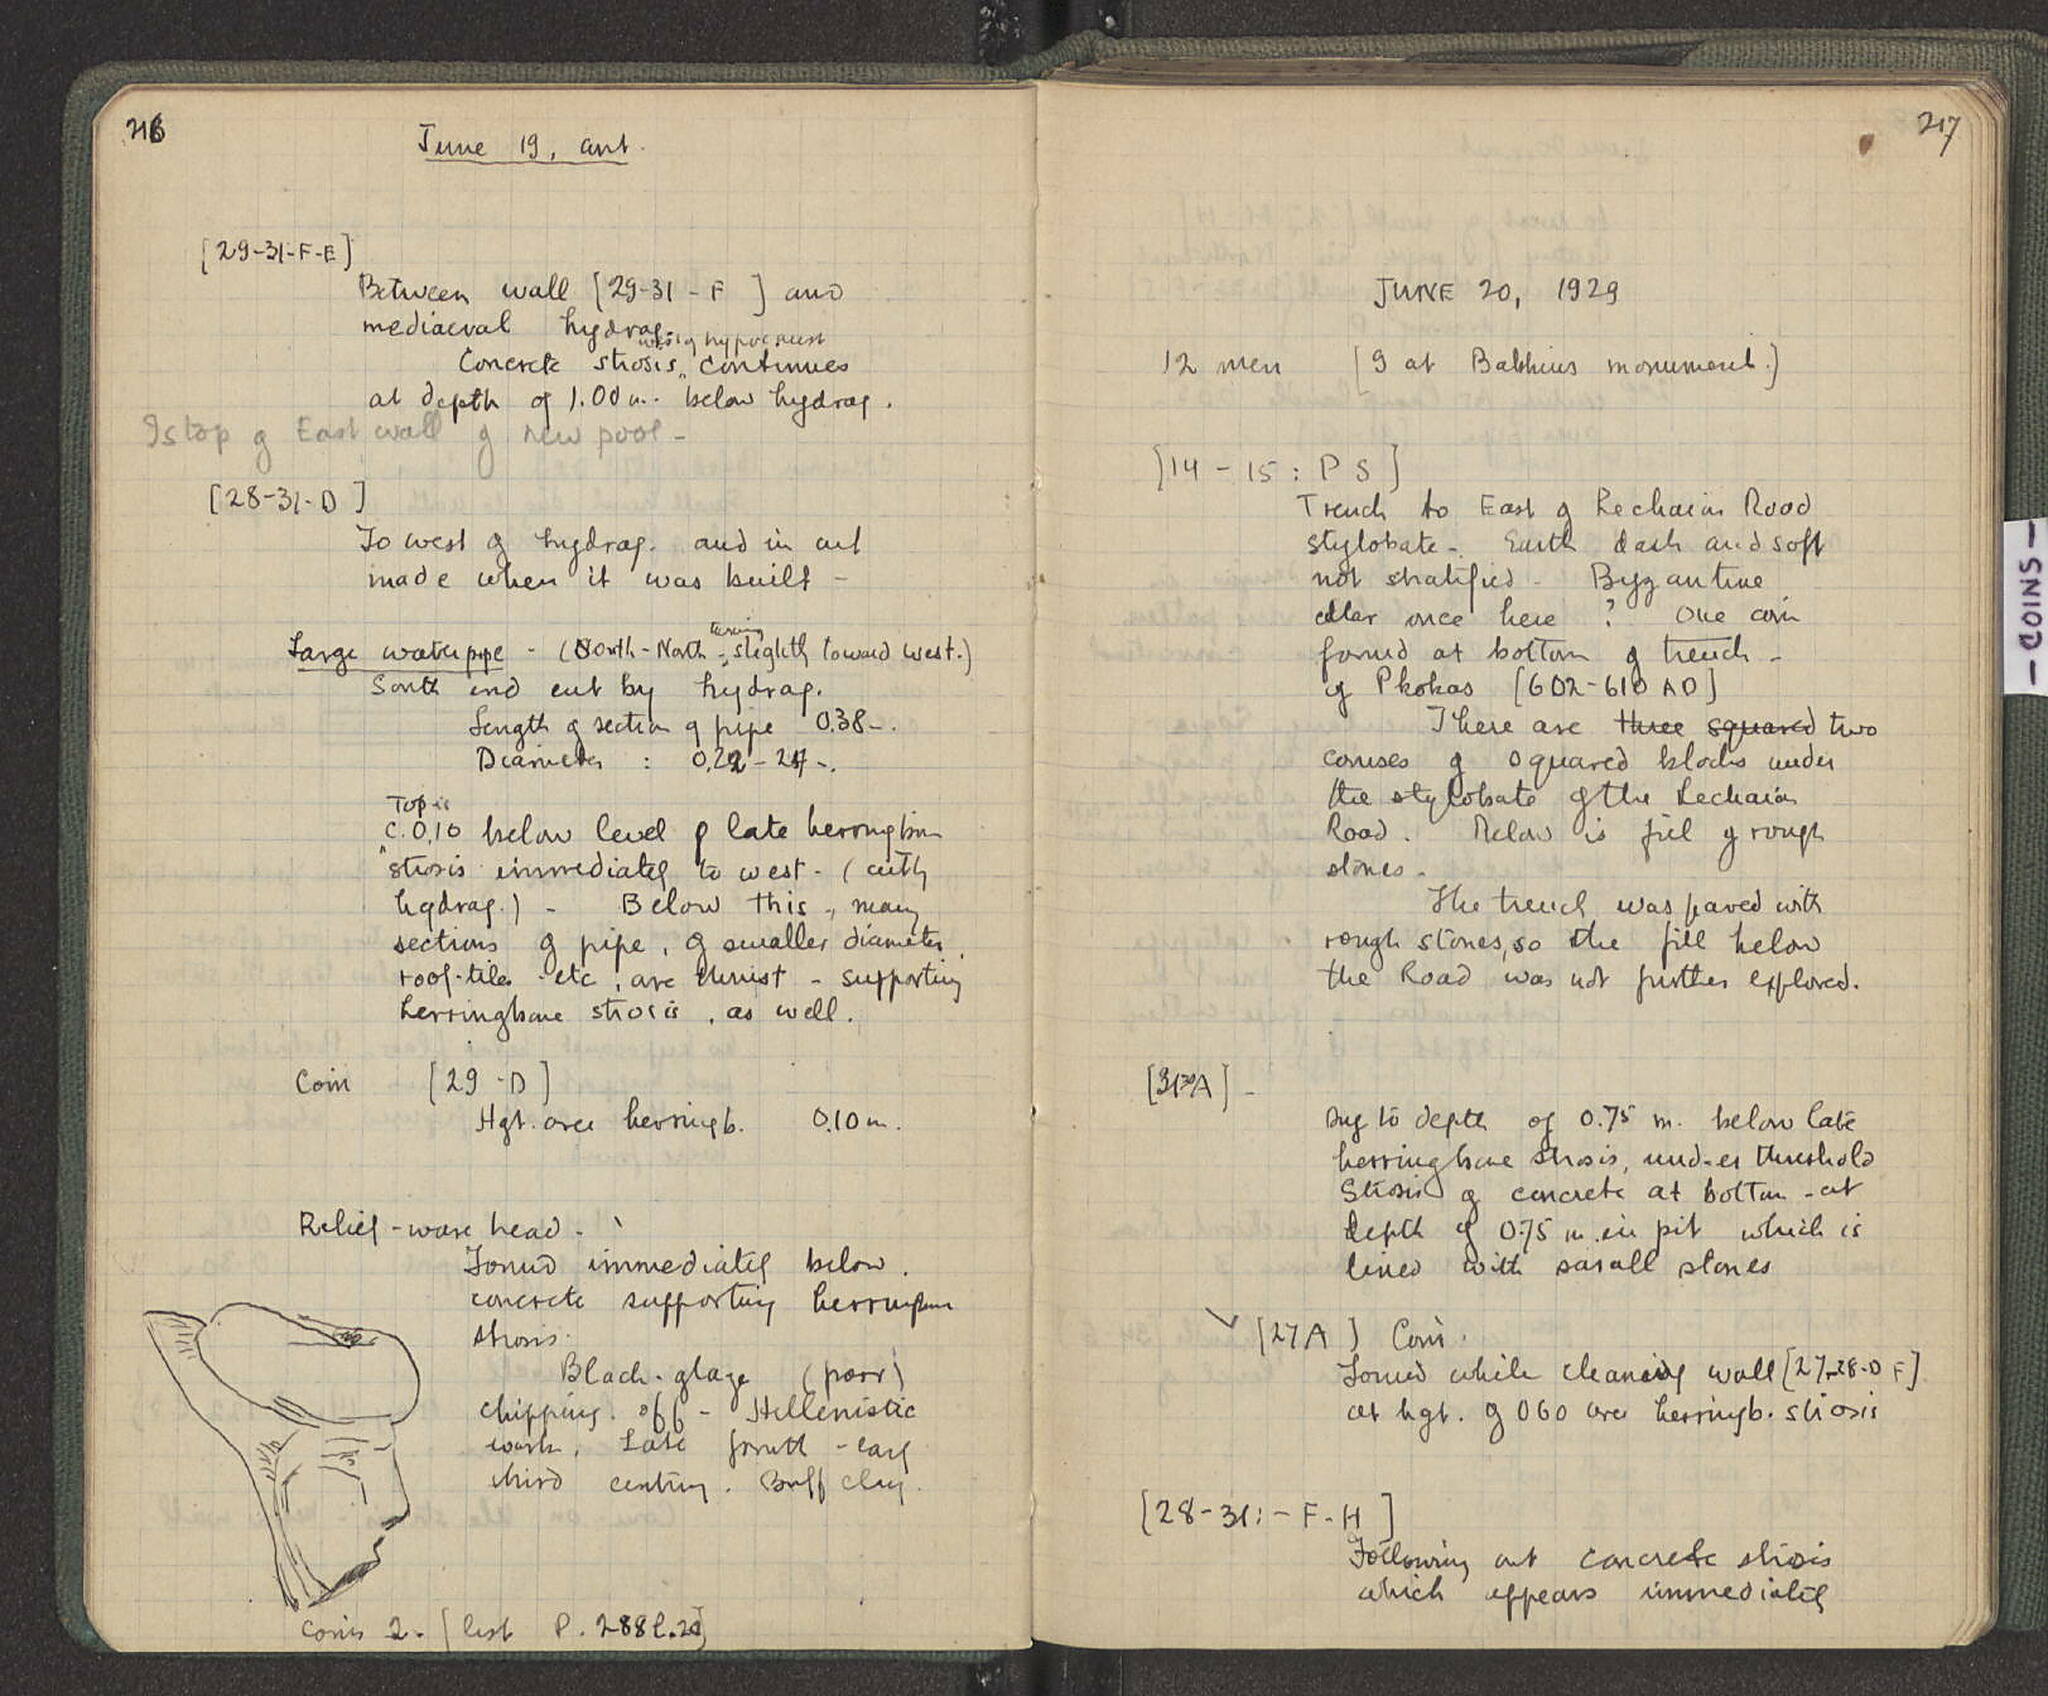 216
June 19, cont.
[29-31-F-E]
Between wall [29-31-F] and
mediaeval hydrag.
west of hypocaust
Concrete strosis, continues
at depth of 1.00 m. below hydrag.
Is top of East wall of new pool -
[28-31-D]
To west of hydrag. and in cut
made when it was built -
turning
Large waterpipe - (South-North - slightly toward west.)
South end cut by hydrag.
Length of section of pipe 0.38-.
Diameter : 0.22 - 24-.
Top is
c. 0.10 below level of late herringbone
strosis immediately to west - (cut by
hydrag.) - Below this, many
sections of pipe, of smaller diameter,
roof-tiles etc, are thrust - supporting
herringbone strosis, as well.
Coin [29-D]
Hgt. over herringb. 0.10 m.
Relief-ware head -
Found immediately below
concrete supporting herringbone
strosis.
Black-glaze (poor)
chipping off - Hellenistic
work. Late fourth - early
third century. Buff clay.
Coins 2. [list P. 288 l. 20]
217
JUNE 20, 1929
12 men [9 at Babbius monument.]
[14 - 15 : P S]
Trench to East of Lechaion Road
stylobate - Earth dark and soft
not stratified - Byzantine
cellar once here ? One coin
found at bottom of trench -
of Phokas [602-610 AD]
There are three squared two
courses of squared blocks under
the stylobate of the Lechaion
Road. Below is fill of rough
stones -
The trench was paved with
rough stones, so the fill below
the Road was not further explored.
[31 30 A] -
Dug to depth of 0.75 m. below late
herringbone strosis, under threshold
Strosis of concrete at bottom - at
depth of 0.75 m. in pit which is
lined with small stones
[27A] Coin.
Found while cleaning wall [27-28-D F]
at hgt. of 0.60 over herringb. strosis
[28-31:-F-H]
Following out concrete strosis
which appears immediately
- COINS -